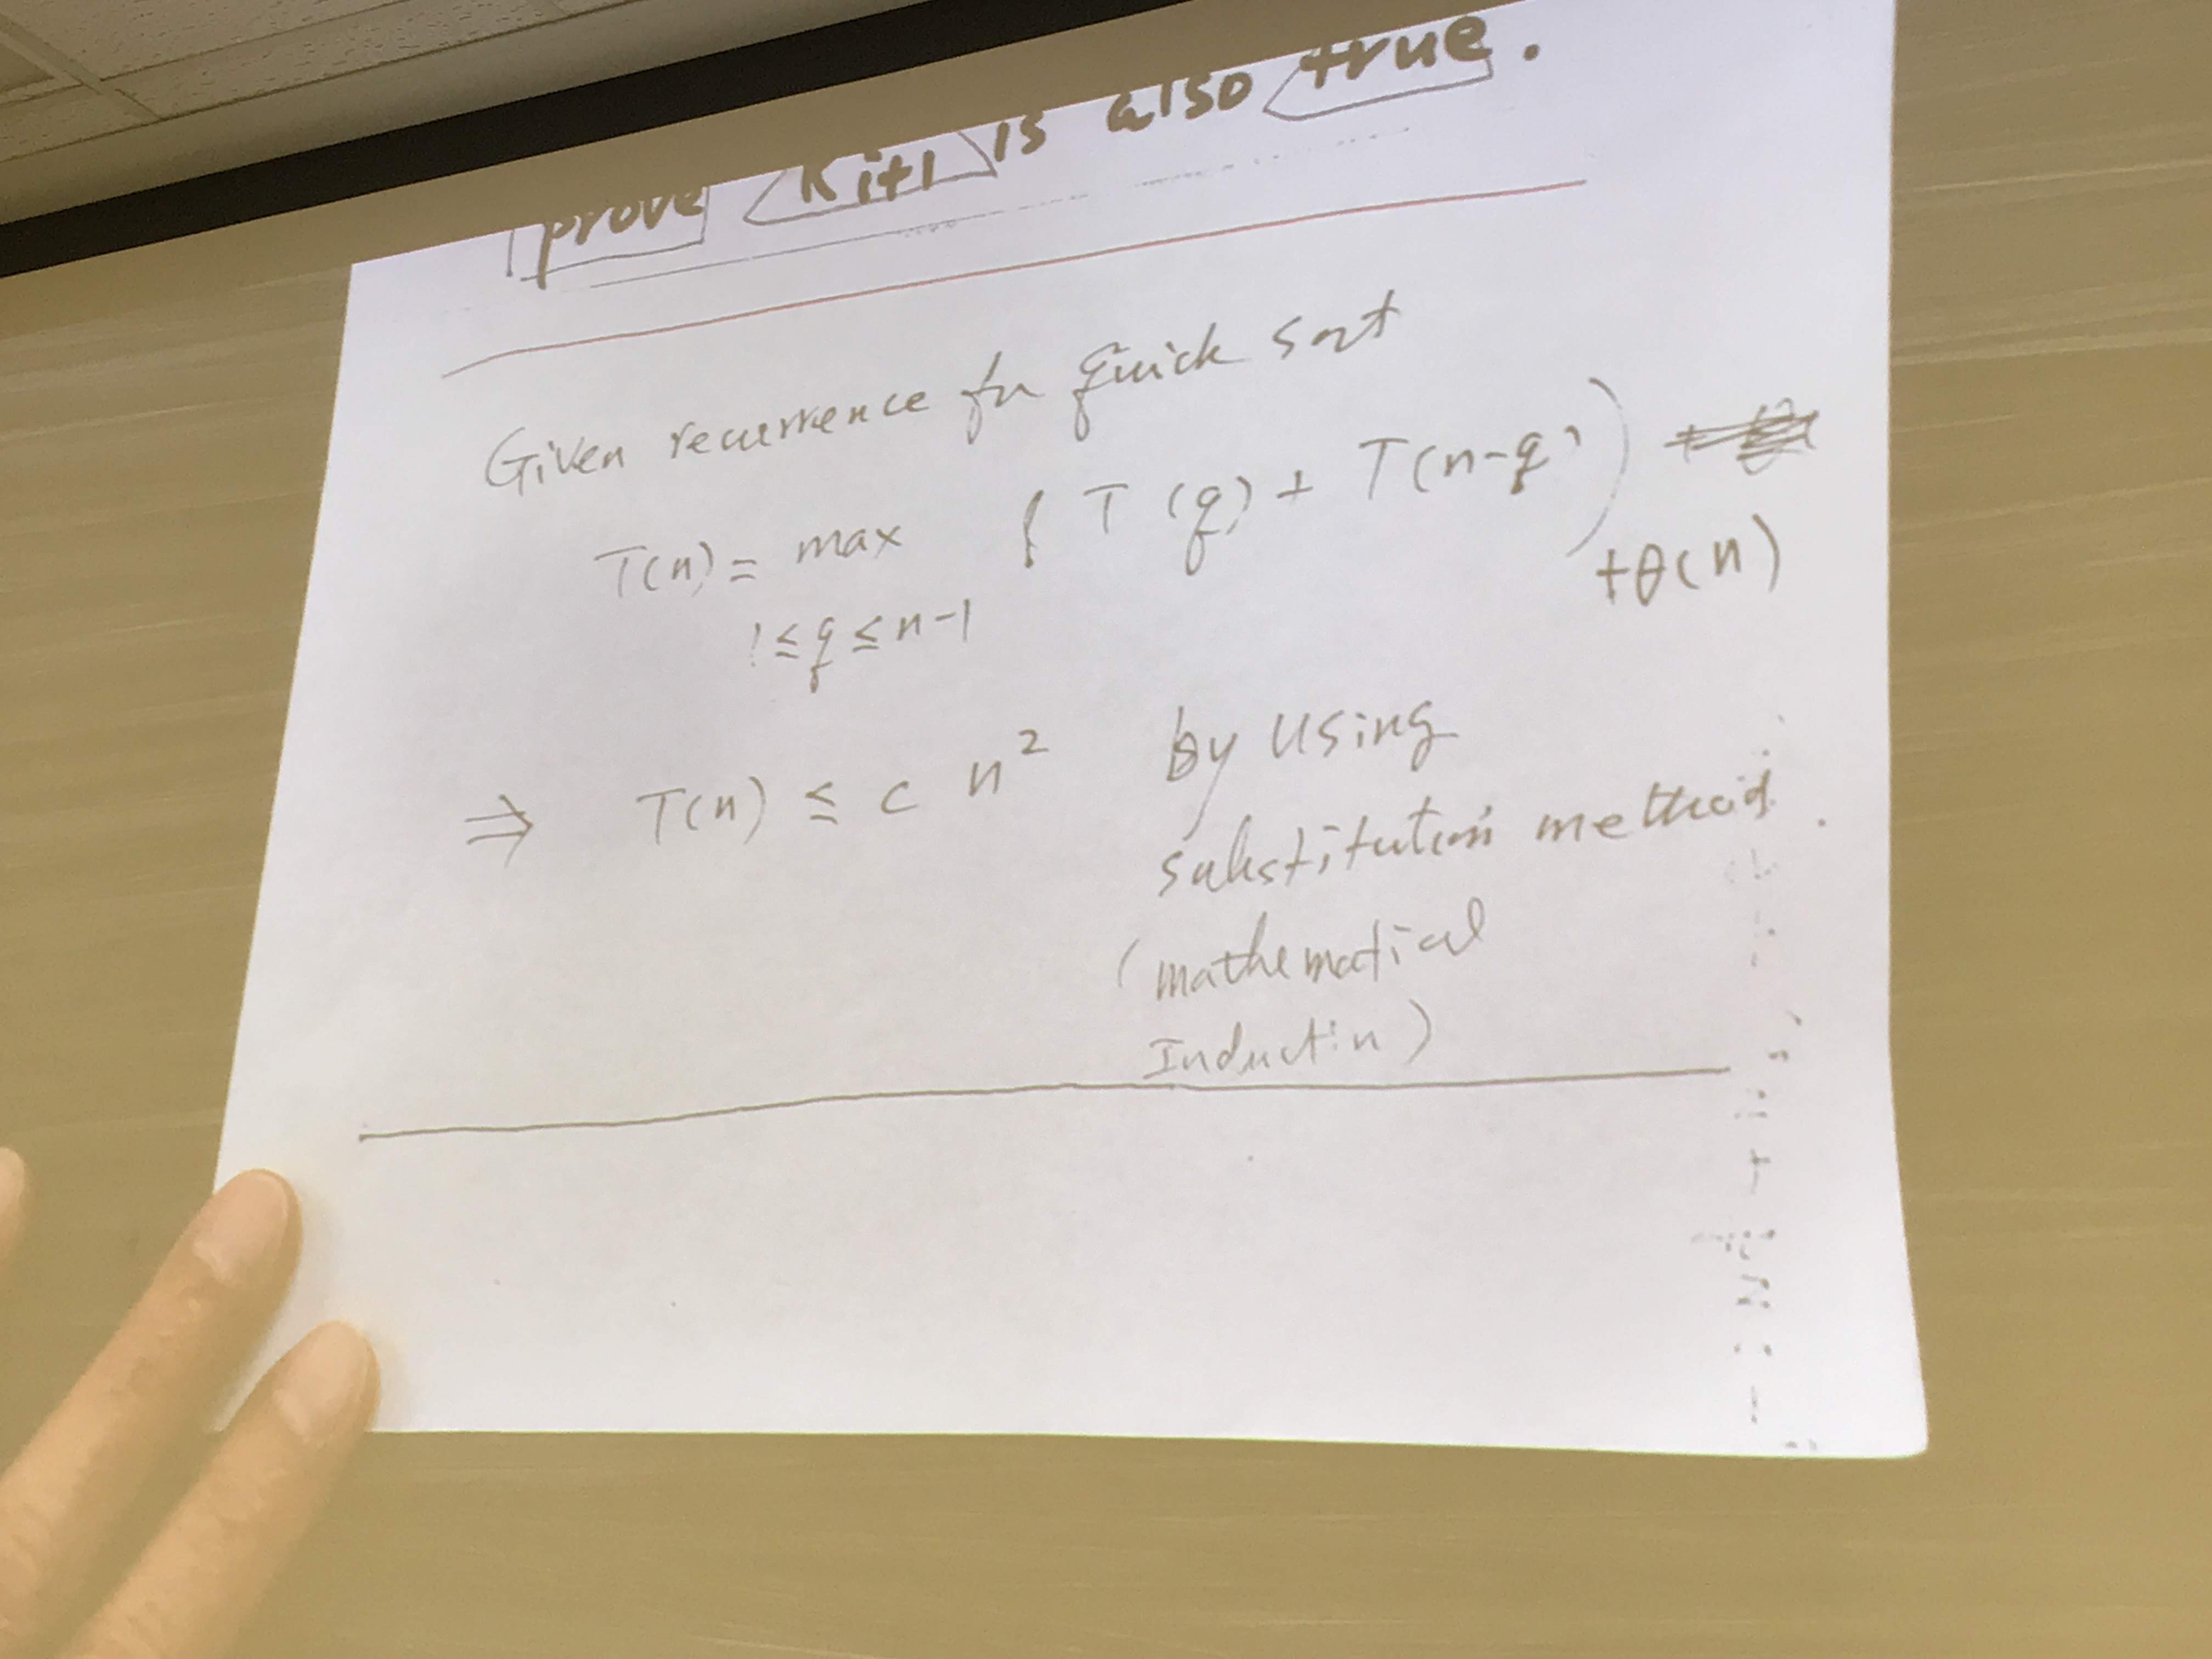 prove Ki+1 is also true.
Given recurrence for quick sort
T(n) = max { T(q) + T(n-q) )
+θ(n)
1≤q≤n-1
⇒ T(n) ≤ c n² by using
substitution method.
(mathematical
Induction)